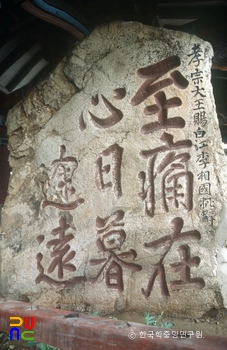 孝宗大王賜白江李相國批辭
至痛在
心日暮
途遠
© 한국학중앙연구원